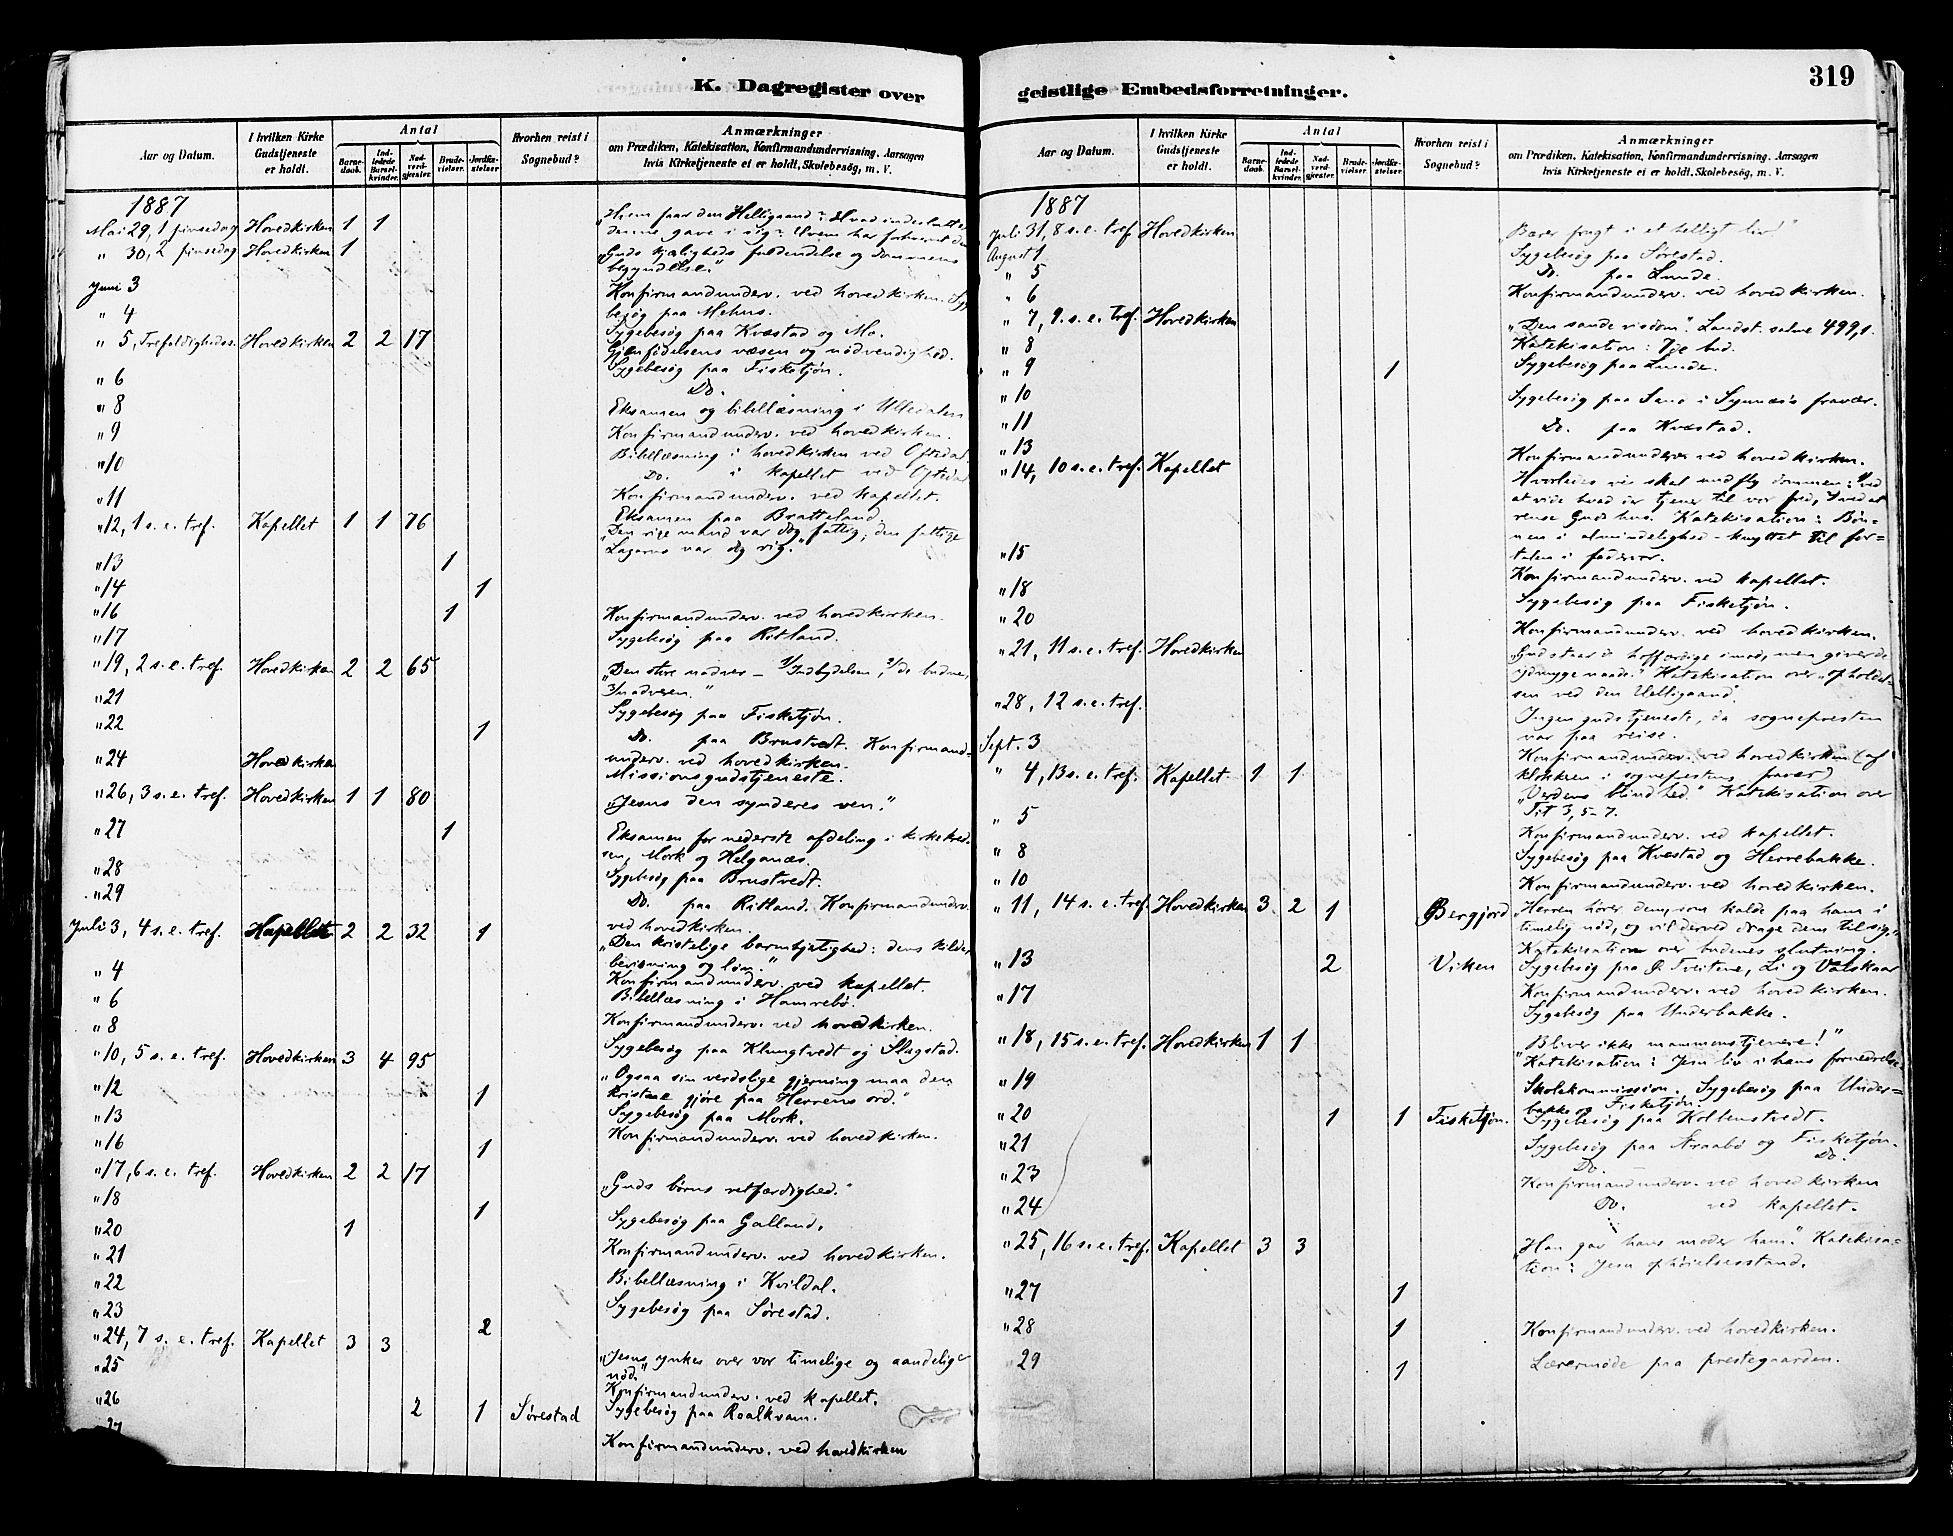 K. Dagregister over
Aar og Datum.
I hvilken Kirke Gudstjeneste er holdt.
Antal
Barne-daab.
Ind-ledede Barsel-kvinder.
Nad-verd-gjester.
Brude-vielser.
Jordfæ-stelser
Hvorhen reist i Sognebud?
Anmærkninger
om Prædiken, Katekisation, Konfirmandundervisning. Aarsagen
hvis Kirketjeneste ei er holdt, Skolebesög, m. V.
1887
Mai 29, 1 pinsedag Hovedkirken 1 1 "Hvem faar den Helligaand? Hvad indeslutter
denne gave i sig? Hvem har forhvervet den
" 30, 2 pinsedag Hovedkirken 1 "Guds kjærligheds fuldendelse og dommens
begyndelse."
Juni 3 Konfirmandunderv. ved hovedkirken. Syge
" 4 besøg paa Mehus.
Sygebesøg paa Kvæstad og Mo.
" 5, Trefoldighedss. Hovedkirken 2 2 17 Gjenfödelsens væsen og nödvendighed.
Sygebesøg paa Fisketjøn.
" 6 Do.
" 8 Eksamen og bibellæsning i Ulledalen
" 9 Konfirmandunderv. ved hovedkirken.
" 10 Bibellæsning i hovedkirken ved Oftedal
Do. i kapellet ved Oftedal
" 11 Konfirmandunderv. ved kapellet.
Eksamen paa Bratteland.
" 12, 1 s. e. tref. Kapellet 1 1 76 "Den rige mand var dog fattig, den fattige
Lazarus var dog rig."
" 13 1
" 14 1
" 16 1 Konfirmandunderv. ved hovedkirken.
" 17 Sygebesøg paa Ritland.
" 19, 2 s. e. tref. Hovedkirken 2 2 65 "Den store nadver – 1/ Indbydelsen, 2/ de budne,
3/ nadveren."
" 21 Sygebesøg paa Fisketjøn.
" 22 1 Do. paa Brustvedt. Konfirmand-
underv. ved hovedkirken.
" 24 Hovedkirken Missionsgudstjeneste.
" 26, 3 s. e. tref. Hovedkirken 1 1 80 "Jesus den synderes ven."
" 27 1 Eksamen for nederste afdeling i kirkekred-
sen, Mork og Helganæs.
" 28 Sygebesøg paa Brustvedt.
" 29 Do. paa Ritland. Konfirmandunderv.
ved hovedkirken.
Juli 3, 4 s. e. tref. Kapellet 2 2 32 1 "Den kristelige barmhjertighed: dens kilder
bevisning og løn."
" 4 Konfirmandunderv. ved kapellet.
" 6 Bibellæsning i Hamrebø.
" 8 Konfirmandunderv. ved hovedkirken.
Sygebesøg paa Klungtvedt og Slagstad.
" 10, 5 s. e. tref. Hovedkirken 3 4 95 "Ogsaa sin verdslige gjerning maa den
kristne gjøre paa Herrens ord."
" 12 1
" 13 Sygebesøg paa Mork.
" 16 1 Konfirmandunderv. ved hovedkirken.
" 17, 6 s. e. tref. Hovedkirken 2 2 17 "Guds börns retfærdighed."
" 18 1
" 20 1 Sygebesøg paa Galland.
" 21 Konfirmandunderv. ved hovedkirken.
" 22 Bibellæsning i Kvildal.
" 23 2 Sygebesøg paa Sørestad.
" 24, 7 s. e. tref. Kapellet 3 3 "Jesus ynkes over vor timelige og aandelige
nød."
" 25 Konfirmandunderv. ved kapellet.
" 26 2 1 Sørestad Sygebesøg paa Roalkvam.
" 27 Konfirmandunderv. ved hovedkirken
geistlige Embedsforretninger.
319
Aar og Datum.
I hvilken Kirke Gudstjeneste er holdt.
Antal
Barne-daab.
Ind-ledede Barsel-kvinder.
Nad-verd-gjester.
Brude-vielser.
Jordfæ-stelser.
Hvorhen reist i Sognebud?
Anmærkninger
om Prædiken, Katekisation, Konfirmandundervisning. Aarsagen
hvis Kirketjeneste ei er holdt, Skolebesög, m. V.
1887
Juli 31, 8 s. e. tref. Hovedkirken "Bærer frugt i et helligt liv!"
August 1 Sygebesøg paa Sørestad.
" 5 Do. paa Lunde.
" 6 Konfirmandunderv. ved hovedkirken.
" 7, 9. s. e. tref. Hovedkirken "Den sande visdom". Landst. salme 499,1.
Katekisation: 7je bud.
" 8 Sygebesøg paa Lunde.
" 9 1
" 10 Sygebesøg paa Sand i Synnæs's fravær.
" 11 Do. paa Kvæstad.
" 13 Konfirmandunderv. ved hovedkirken.
" 14, 10 s. e. tref. Kapellet Hvorledes vi skal undfly dommen: Ved
at vide hvad der tjener til vor fred, ved at
rense Guds hus. Katekisation: Bøn-
nen i almindelighed – knyttet til for-
talen i fadervor.
" 15 Konfirmandunderv. ved kapellet.
" 18 Sygebesøg paa Fisketjøn.
" 20 Konfirmandunderv. ved hovedkirken.
" 21, 11 s. e. tref. Hovedkirken "Gud staar de hoffærdige imod, men giver de
ydmyge naade." Katekisation over "opholdel-
sen ved den Helligaand".
" 28, 12 s. e. tref. Ingen gudstjeneste, da sognepresten
var paa reise.
Sept. 3 Konfirmandunderv. ved hovedkirken (af
klokken i sogneprestens fravær)
" 4, 13 s. e. tref. Kapellet 1 1 "Verdens blindhed." Katekisation over
Tit 3, 5-7.
" 5 Konfirmandunderv. ved kapellet.
" 8 Sygebesøg paa Kvæstad og Herrebakke.
" 10 Konfirmandunderv. ved hovedkirken.
" 11, 14 s. e. tref. Hovedkirken 3 2 1 Bergjord "Herren hører dem, som kalde paa ham i
timelig nød, og vil derved drage dem til sig."
Katekisation over budenes slutning.
" 13 2 Viken Sygebesøg paa Tveitene, Li og Vatskaar
" 17 Konfirmandunderv. ved hovedkirken.
Sygebesøg paa Underbakke.
" 18, 15 s. e. tref. Hovedkirken 1 1 "Bliver ikke mammonstjenere!"
Katekisation: Jesu liv i hans fornedrelse
" 19 Skolekommission. Sygebesøg paa Under-
bakke og Fisketjøn.
" 20 1 1 Fisketjøn. Sygebesøg paa Kolbenstvedt.
" 21 Sygebesøg paa Araabø og Fisketjøn.
Do. Do.
" 23 Konfirmandunderv. ved hovedkirken
" 24 Do. ved kapellet.
" 25, 16 s. e. tref. Kapellet 3 3 "Han gav hans moder ham." Katekisa-
tion: Jesu ophøielsesstand.
" 27 1
" 28 1 Konfirmandunderv. ved hovedkirken.
" 29 1 Lærermøde paa prestegaarden.